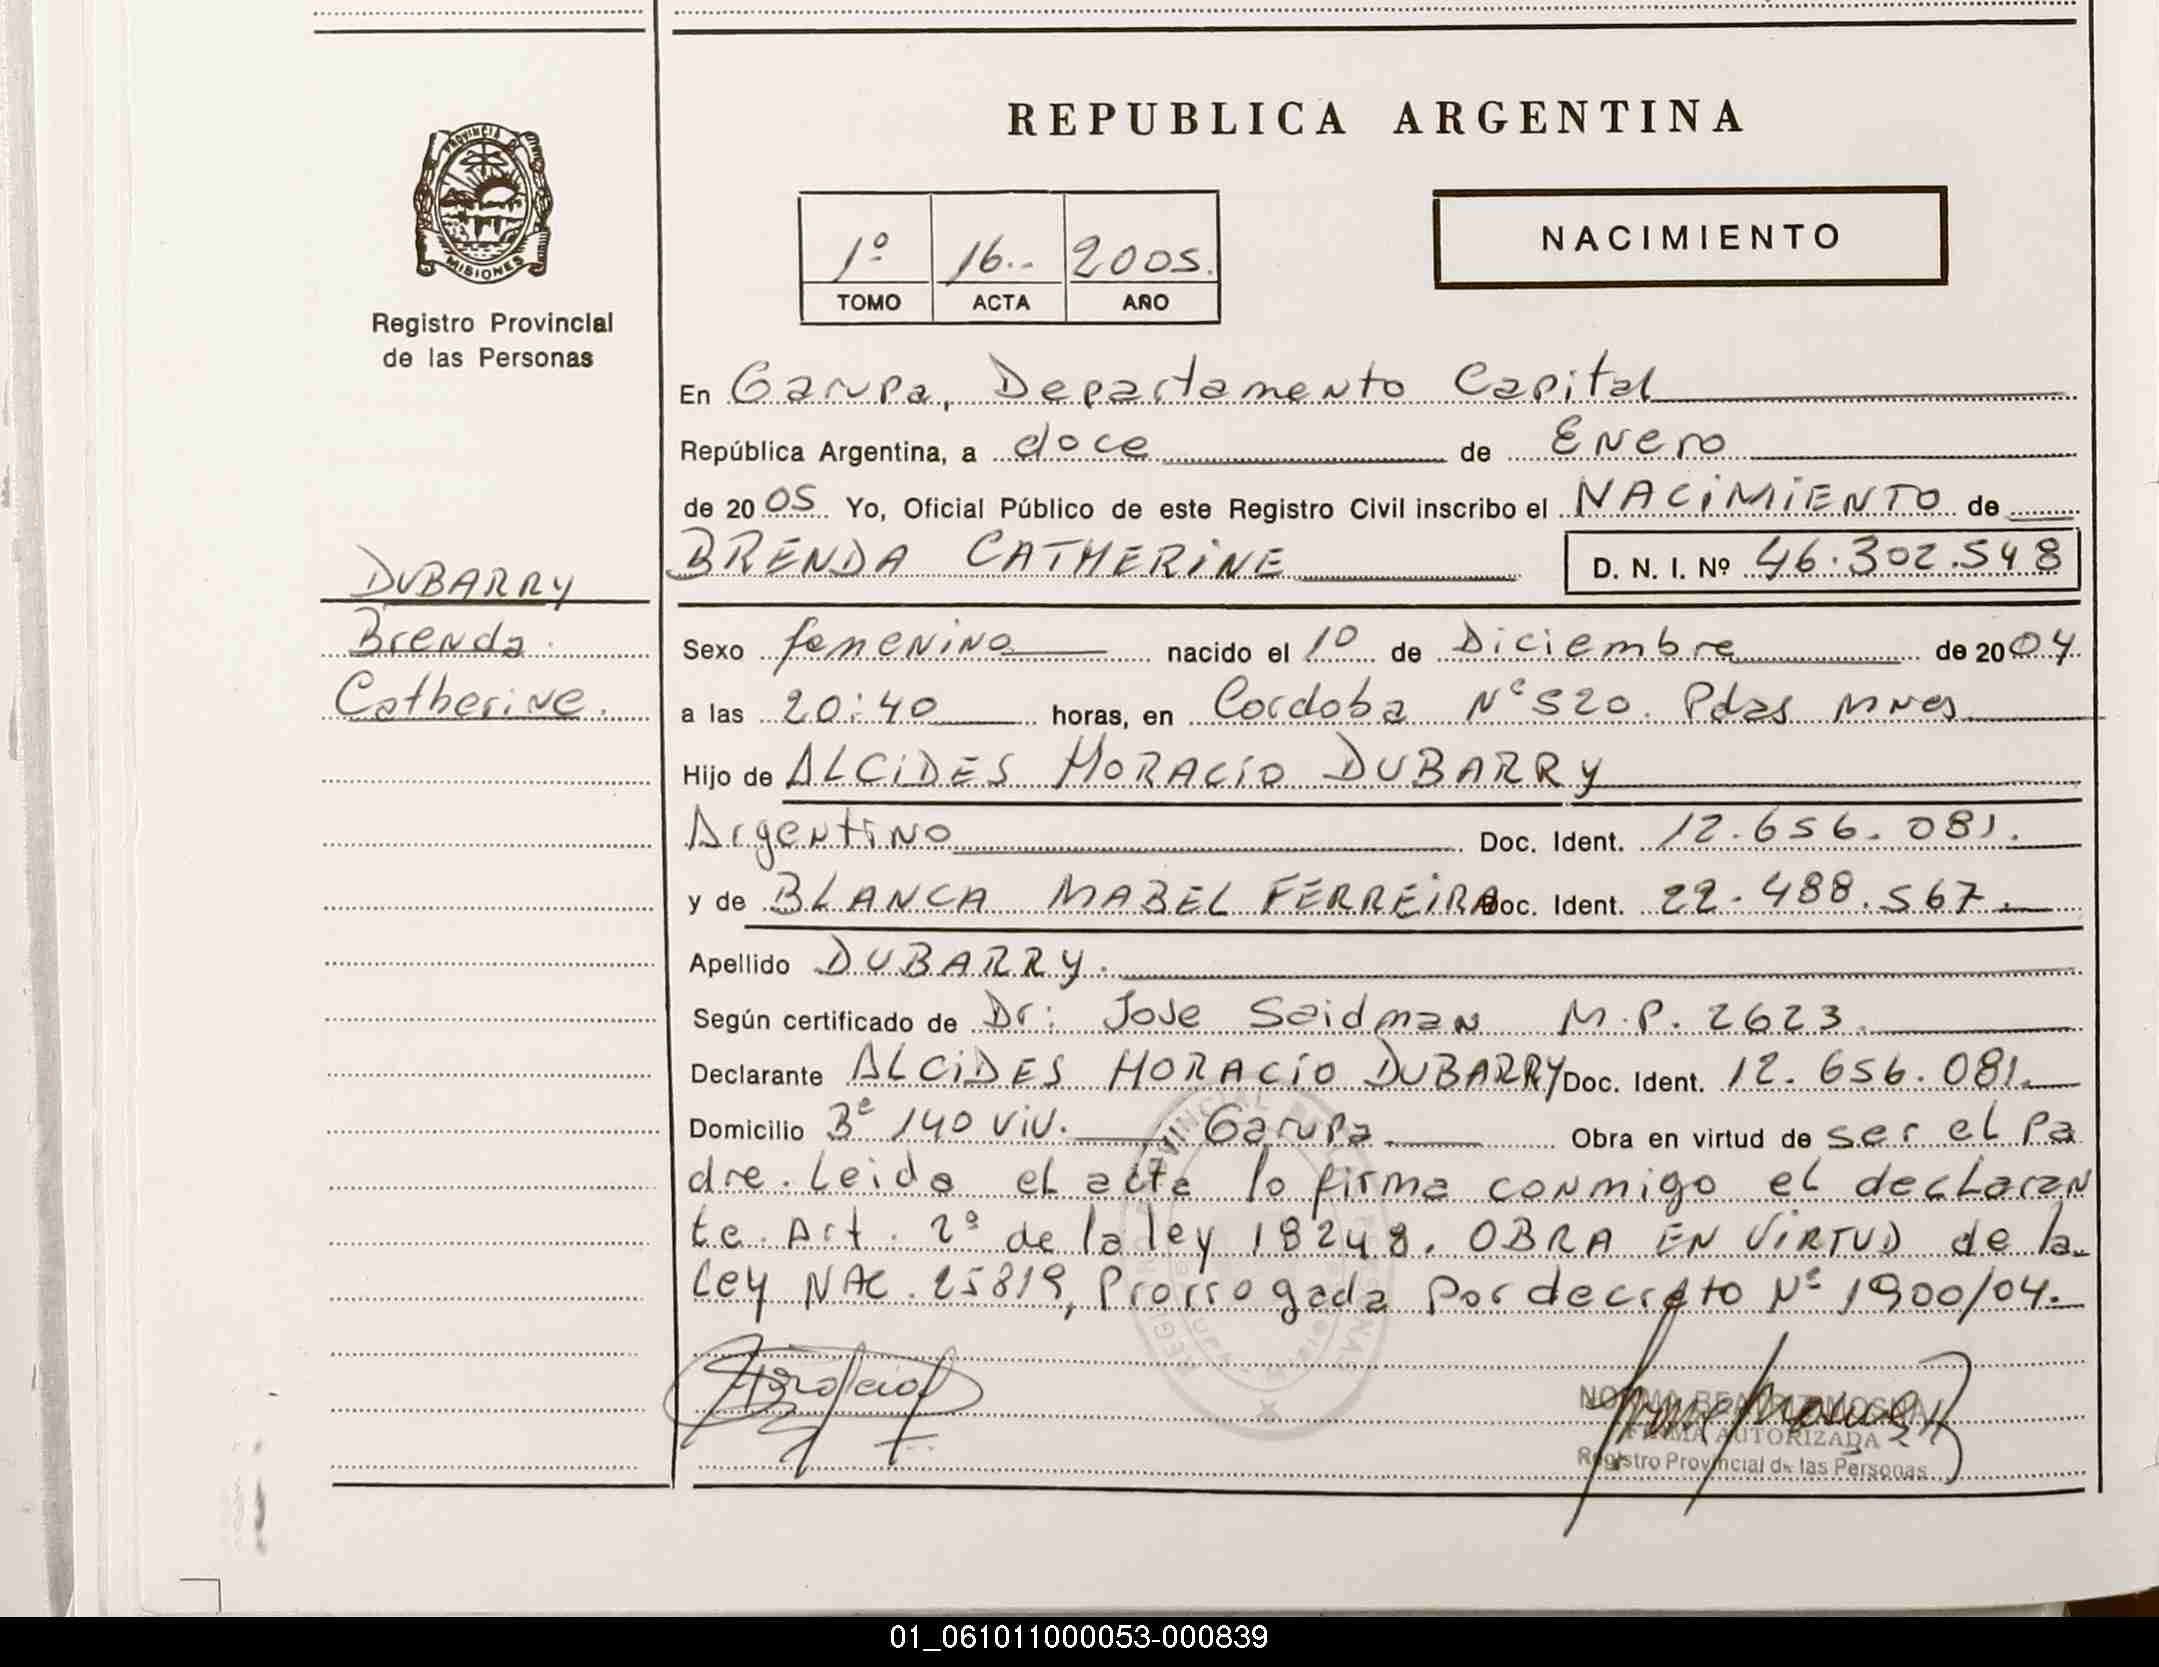 REPUBLICA ARGENTINA
PROVINCIA DE
MISIONES
Registro Provincial
de las Personas
1º 16.. 2005.
TOMO ACTA AÑO
NACIMIENTO
En Garupa, Departamento Capital
República Argentina, a doce de Enero
de 2005 Yo, Oficial Público de este Registro Civil inscribo el NACIMIENTO de
BRENDA CATHERINE D. N. I. Nº 46.302.548
DUBARRY
Brenda
Catherine.
Sexo femenino nacido el 1º de Diciembre de 2004
a las 20:40 horas, en Cordoba Nº 520. Pdas Mnes
Hijo de ALCIDES HORACIO DUBARRY
Argentino Doc. Ident. 12.656.081.
y de BLANCA MABEL FERREIRA Doc. Ident. 22.488.567.
Apellido DUBARRY.
Según certificado de Dr: Jose Saidman M.P. 2623.
Declarante ALCIDES HORACIO DUBARRY Doc. Ident. 12.656.081.
Domicilio Bº 140 viv. Garupa Obra en virtud de ser el Pa
dre. Leida el acta lo firma conmigo el declaran
te. Art. 2º de la ley 18248. OBRA EN VIRTUD de la
Ley NAC. 25819, Prorrogada Por decreto Nº 1900/04.
NORMA BEATRIZ
FIRMA AUTORIZADA
Registro Provincial de las Personas
01_061011000053-000839